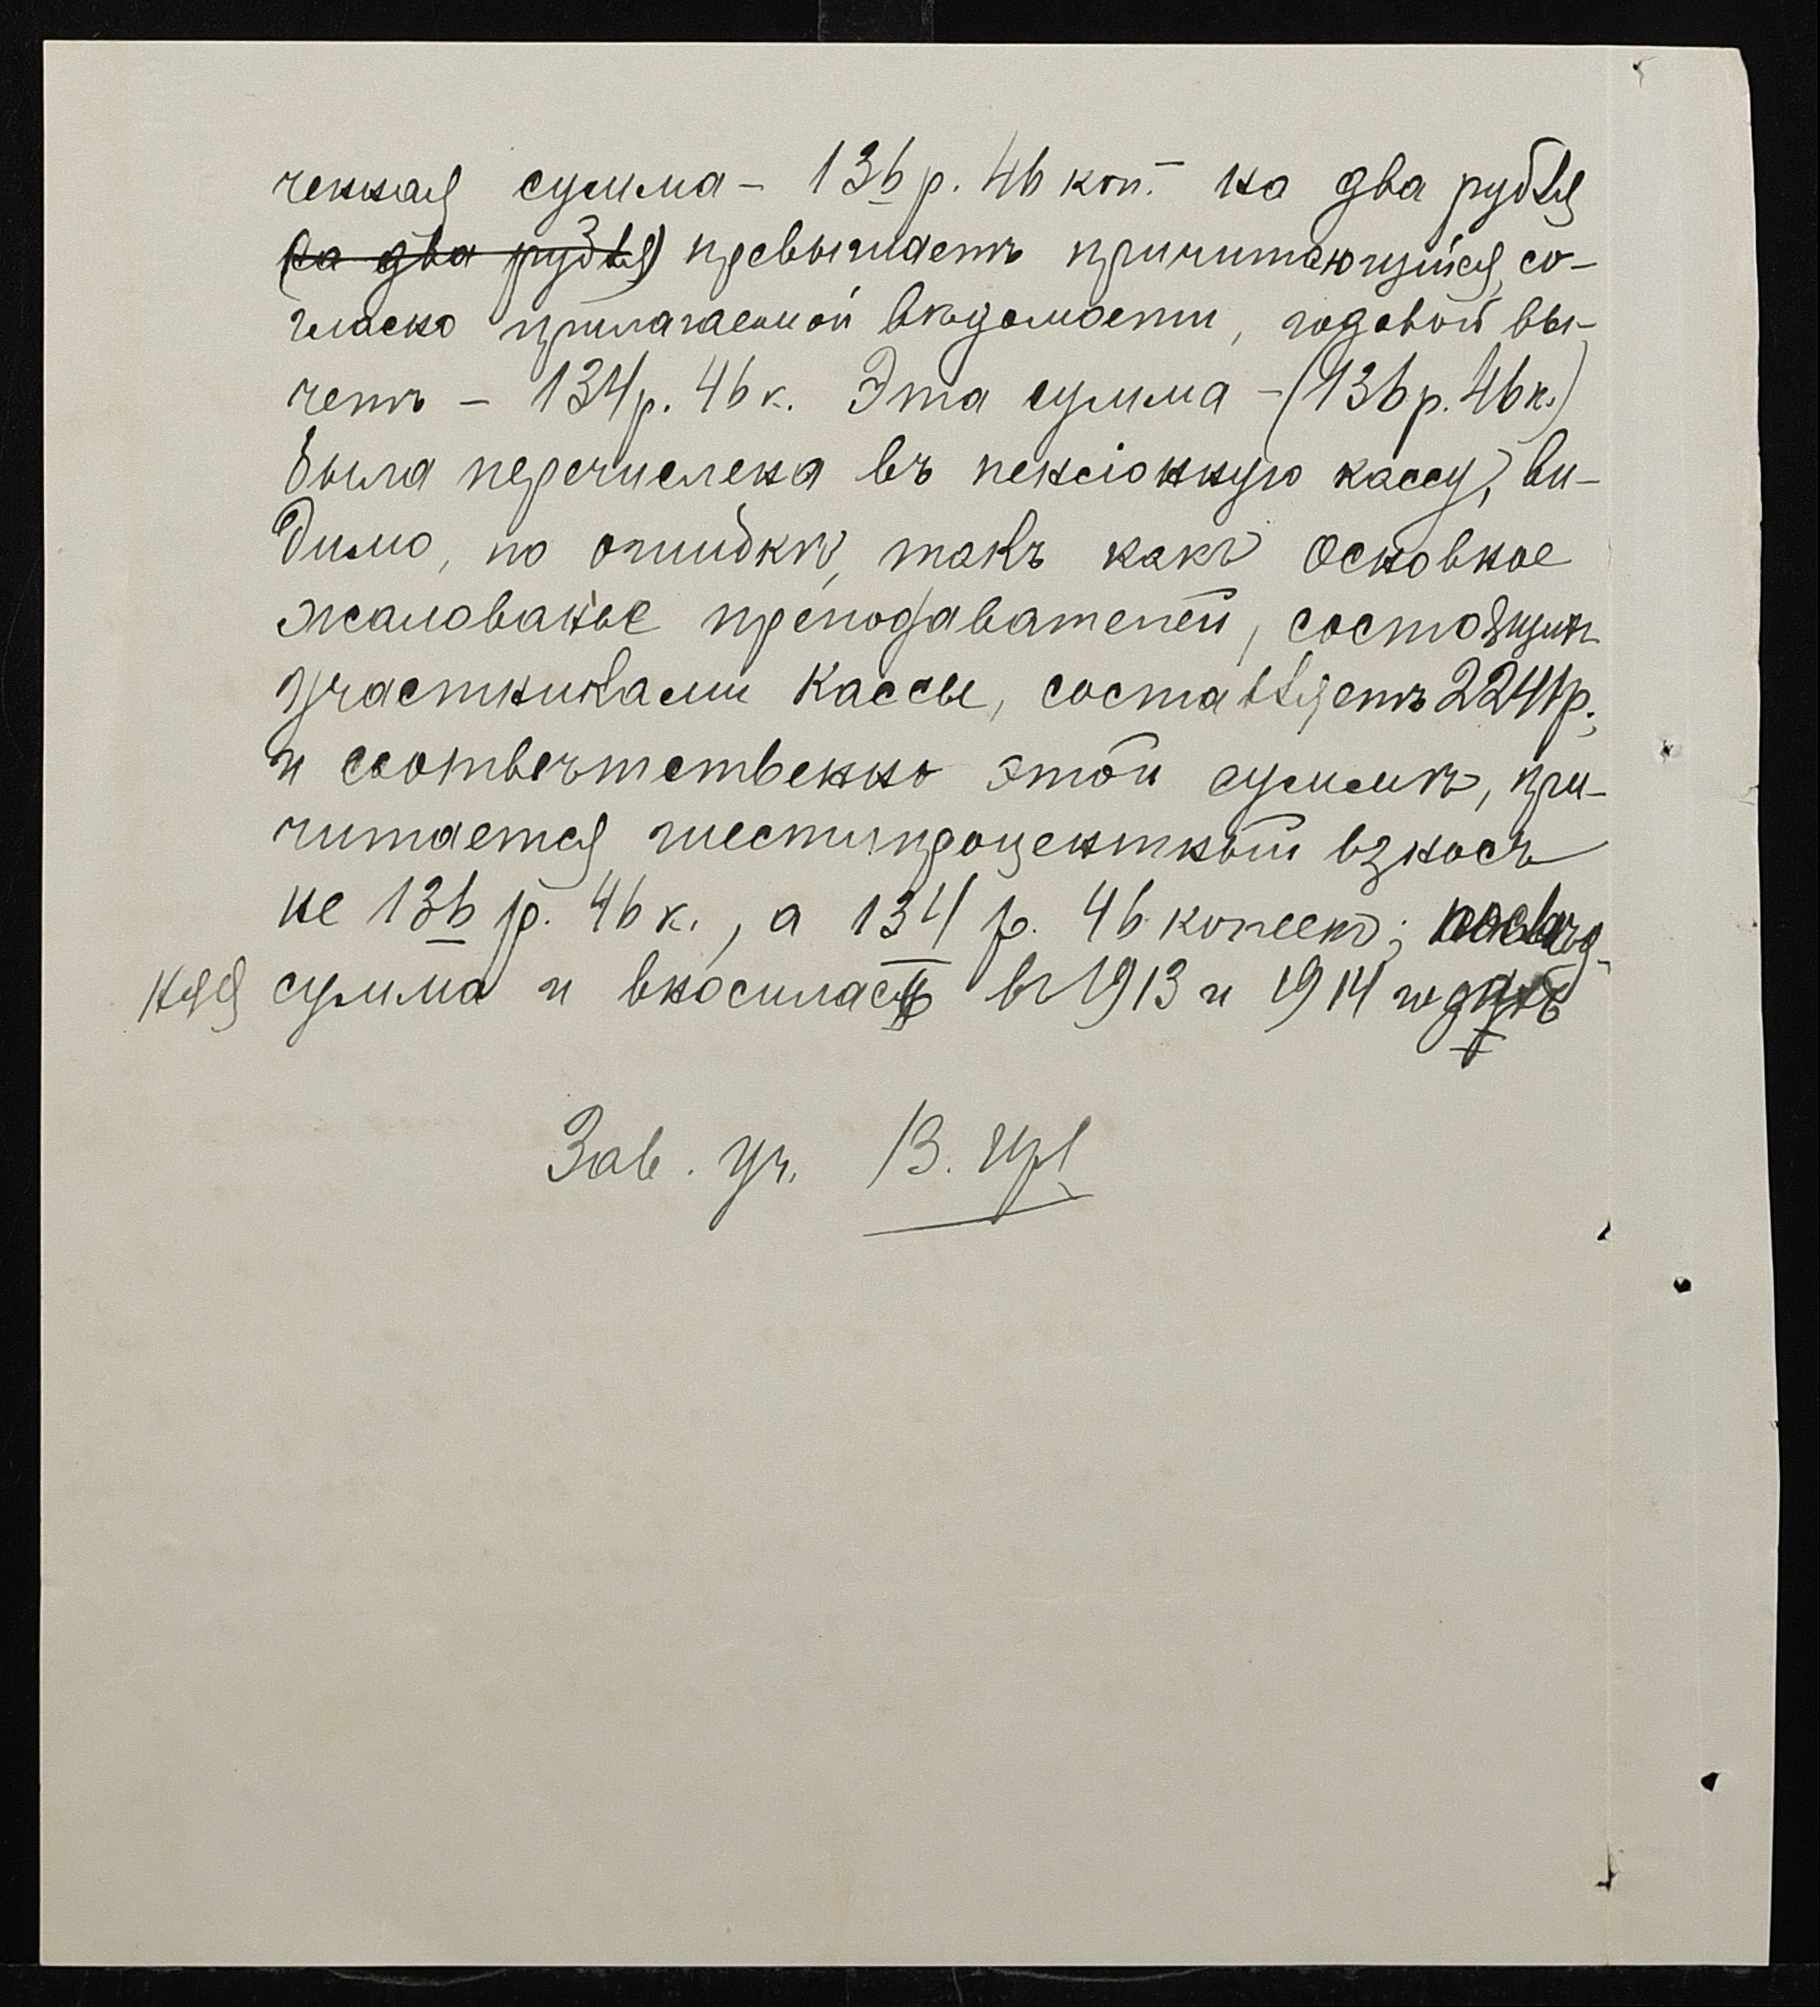 ченная сумма – 136 р. 46 коп. на два рубля
(на два рубля) превышаетъ причитающійся, со-
гласно прилагаемой вѣдомости, годовой вы-
четъ – 134 р. 46 к. Эта сумма – (136 р. 46 к.)
была перечислена въ пенсіонную кассу, ви-
димо, по ошибкѣ, такъ какъ основное
жалованье преподавателей, состоящихъ
участниками кассы, составляетъ 2241 р.,
и соотвѣтственно этой суммѣ, при-
читается шестипроцентный взносъ
не 136 р. 46 к., а 134 р. 46 копеекъ; послѣд-
няя сумма и вносилась въ 1913 и 1914 годахъ
Зав. уч. В.